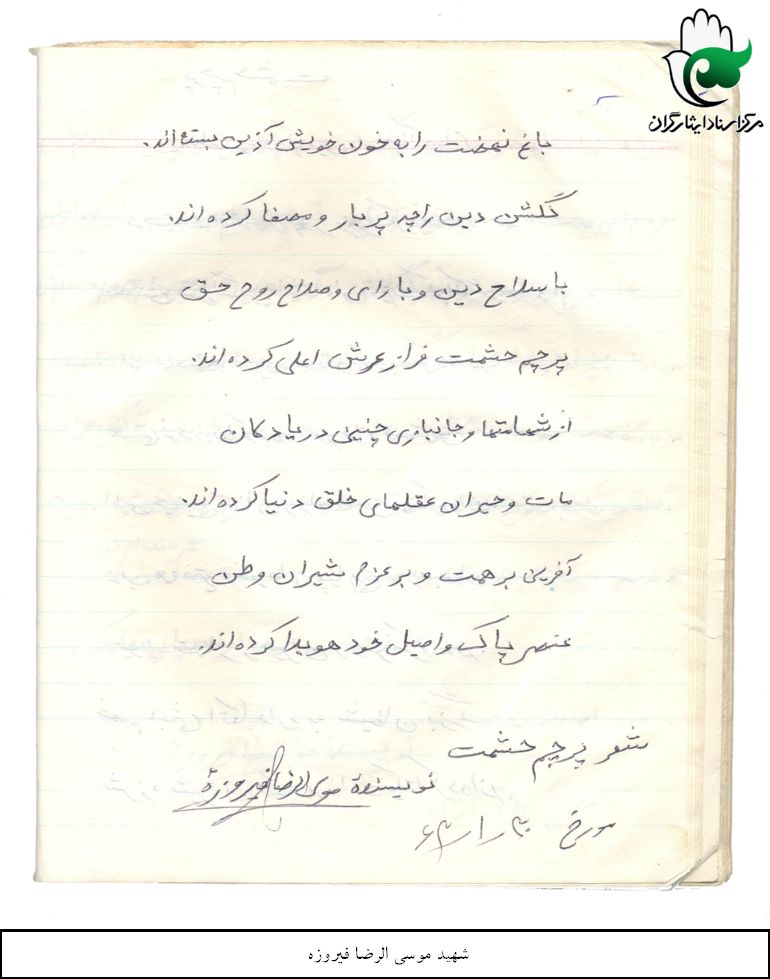 مرکز اسناد ایثارگران
باغ نهضت را به خون خویش آذین بسته‌اند.
گلشن دین را چه پر بار و مصفا کرده‌اند.
با سلاح دین و با رای و صلاح روح حق
پرچم حشمت فراز عرش اعلی کرده‌اند.
از شهامتها و جانبازی چنین دریادلان
مات و حیران عقلهای خلق دنیا کرده‌اند.
آفرین بر همت و بر عزم شیران وطن
عنصر پاک و اصیل خود هویدا کرده‌اند.
شعر پرچم حشمت
نویسندهٔ موسی الرضا فیروزهٔ
مورخ
شهید موسی الرضا فیروزه